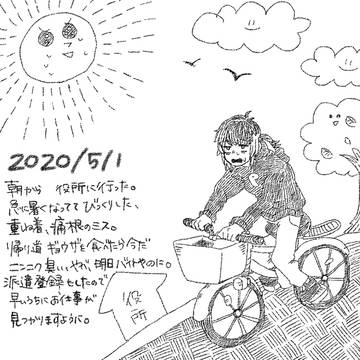 2020/5/1
朝から 役所に行った。
急に暑くなっててびっくりした、
重ね着、痛恨のミス。
帰り道 ギョウザを食べたら今だ
ニンニク臭い。いやや、明日バイトやのに。
派遣登録もしたので
早いうちにお仕事が
見つかりますように。
役所